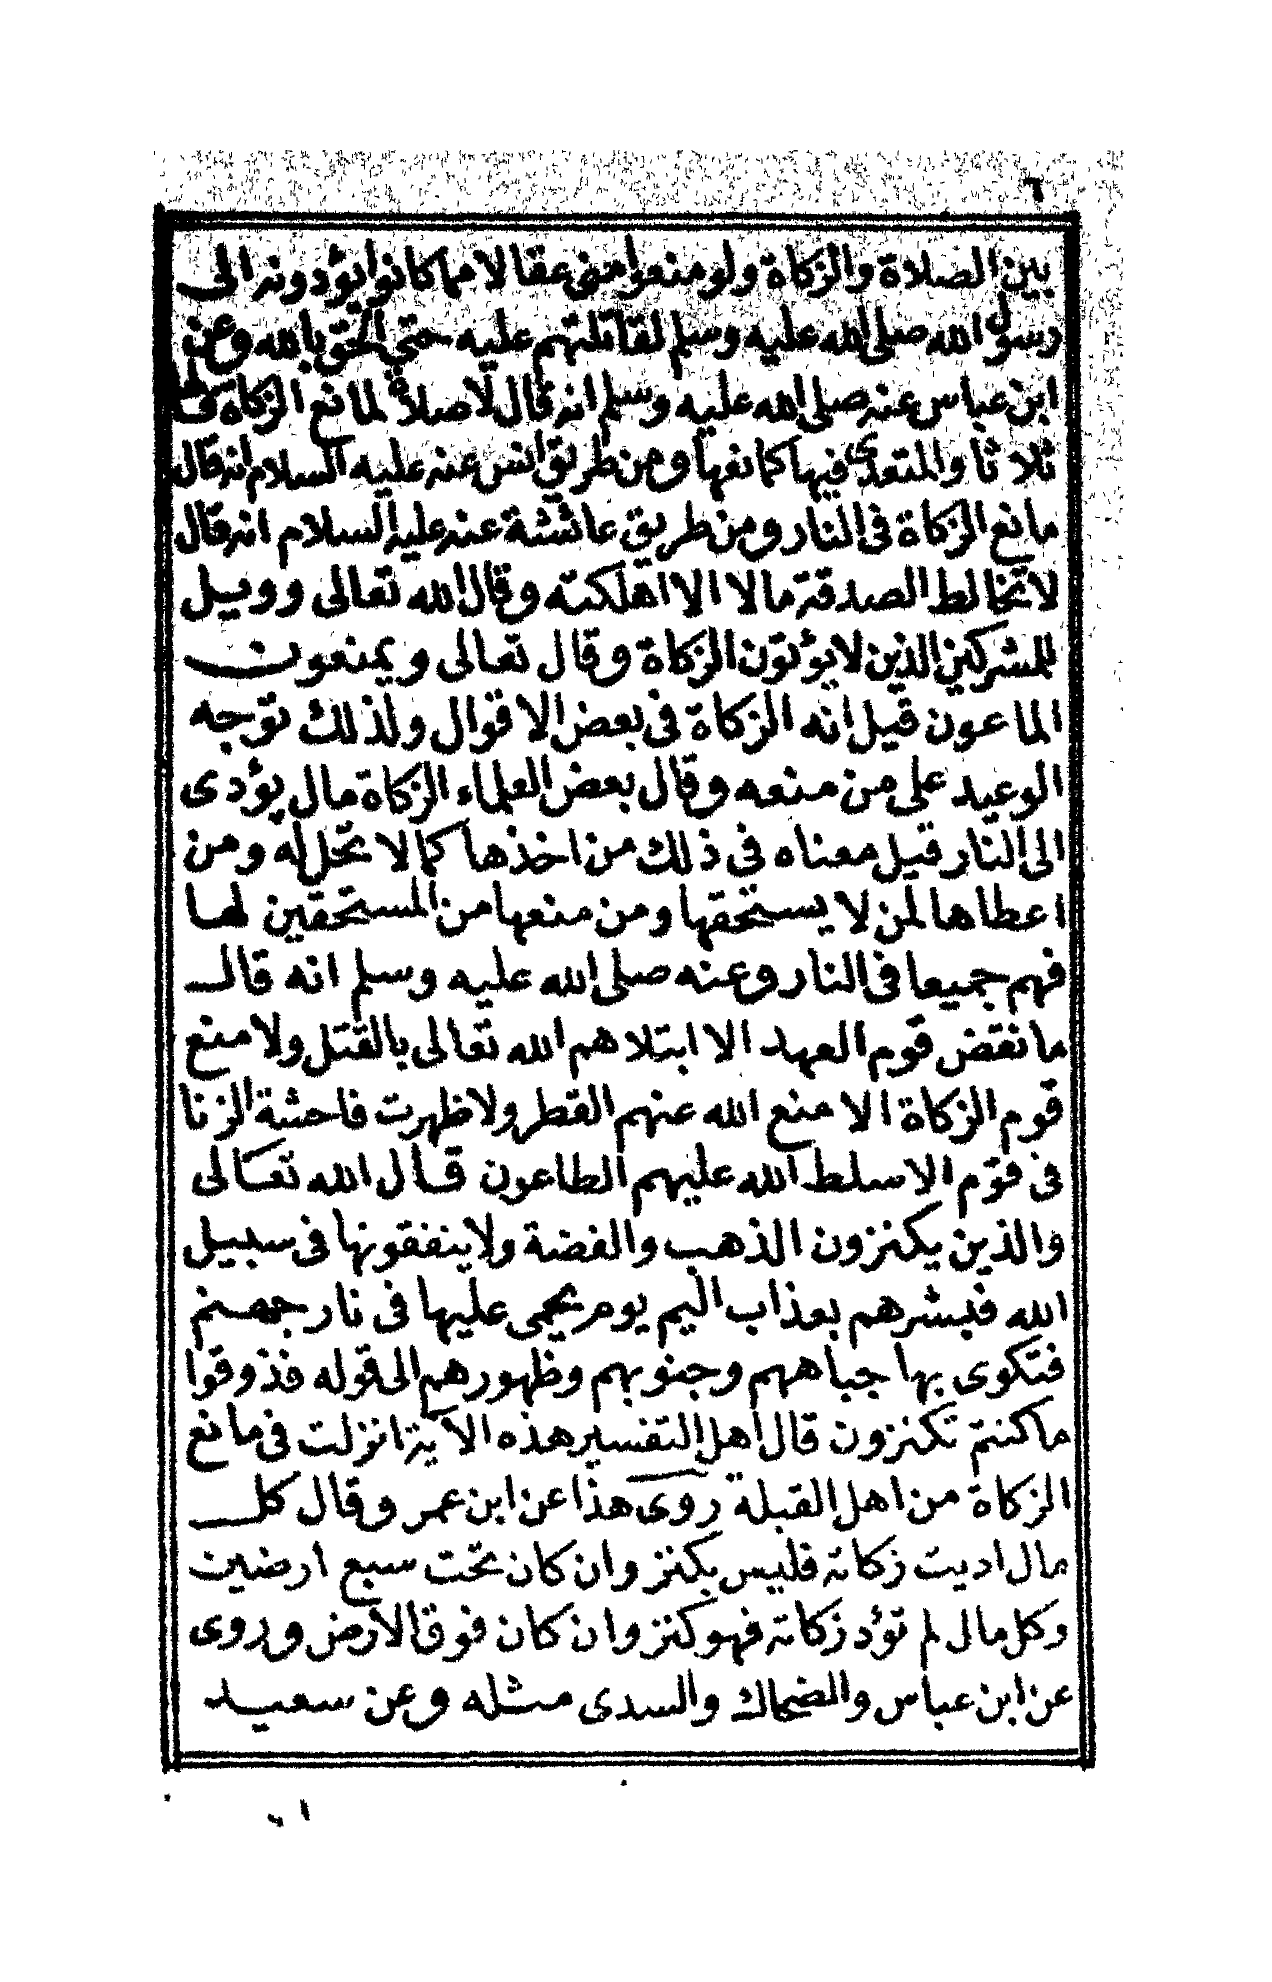 ٦
بين الصلاة والزكاة ولو منعوا مني عقالا مما كانوا يؤدونه الى
رسول الله صلى الله عليه وسلم لقاتلتهم عليه حتى الحق بالله وعن
ابن عباس عنه صلى الله عليه وسلم انه قال لا صلاة لمانع الزكاة قالها
ثلاثا والمتعدى فيها كمانعها ومن طريق انس عنه عليه السلام انه قال
مانع الزكاة فى النار ومن طريق عائشة عنه عليه السلام انه قال
لا تخالط الصدقة مالا الا اهلكته وقال الله تعالى وويل
للمشركين الذين لا يؤتون الزكاة وقال تعالى ويمنعون
الماعون قيل انه الزكاة فى بعض الاقوال ولذلك توجه
الوعيد على من منعه وقال بعض العلماء الزكاة مال يؤدى
الى النار قيل معناه فى ذلك من اخذها كما لا تحل له ومن
اعطاها لمن لا يستحقها ومن منعها من المستحقين لها
فهم جميعا فى النار وعنه صلى الله عليه وسلم انه قال
ما نقض قوم العهد الا ابتلاهم الله تعالى بالقتل ولا منع
قوم الزكاة الا منع الله عنهم القطر ولا ظهرت فاحشة الزنا
فى قوم الا سلط الله عليهم الطاعون قال الله تعالى
والذين يكنزون الذهب والفضة ولا ينفقونها فى سبيل
الله فبشرهم بعذاب اليم يوم يحمى عليها فى نار جهنم
فتكوى بها جباههم وجنوبهم وظهورهم الى قوله فذوقوا
ما كنتم تكنزون قال اهل التفسير هذه الآية انزلت فى مانع
الزكاة من اهل القبلة روى هذا عن ابن عمر وقال كل
مال اديت زكاته فليس بكنز وان كان تحت سبع ارضين
وكل مال لم تؤد زكاته فهو كنز وان كان فوق الارض وروى
عن ابن عباس والضحاك والسدى مثله وعن سعيد